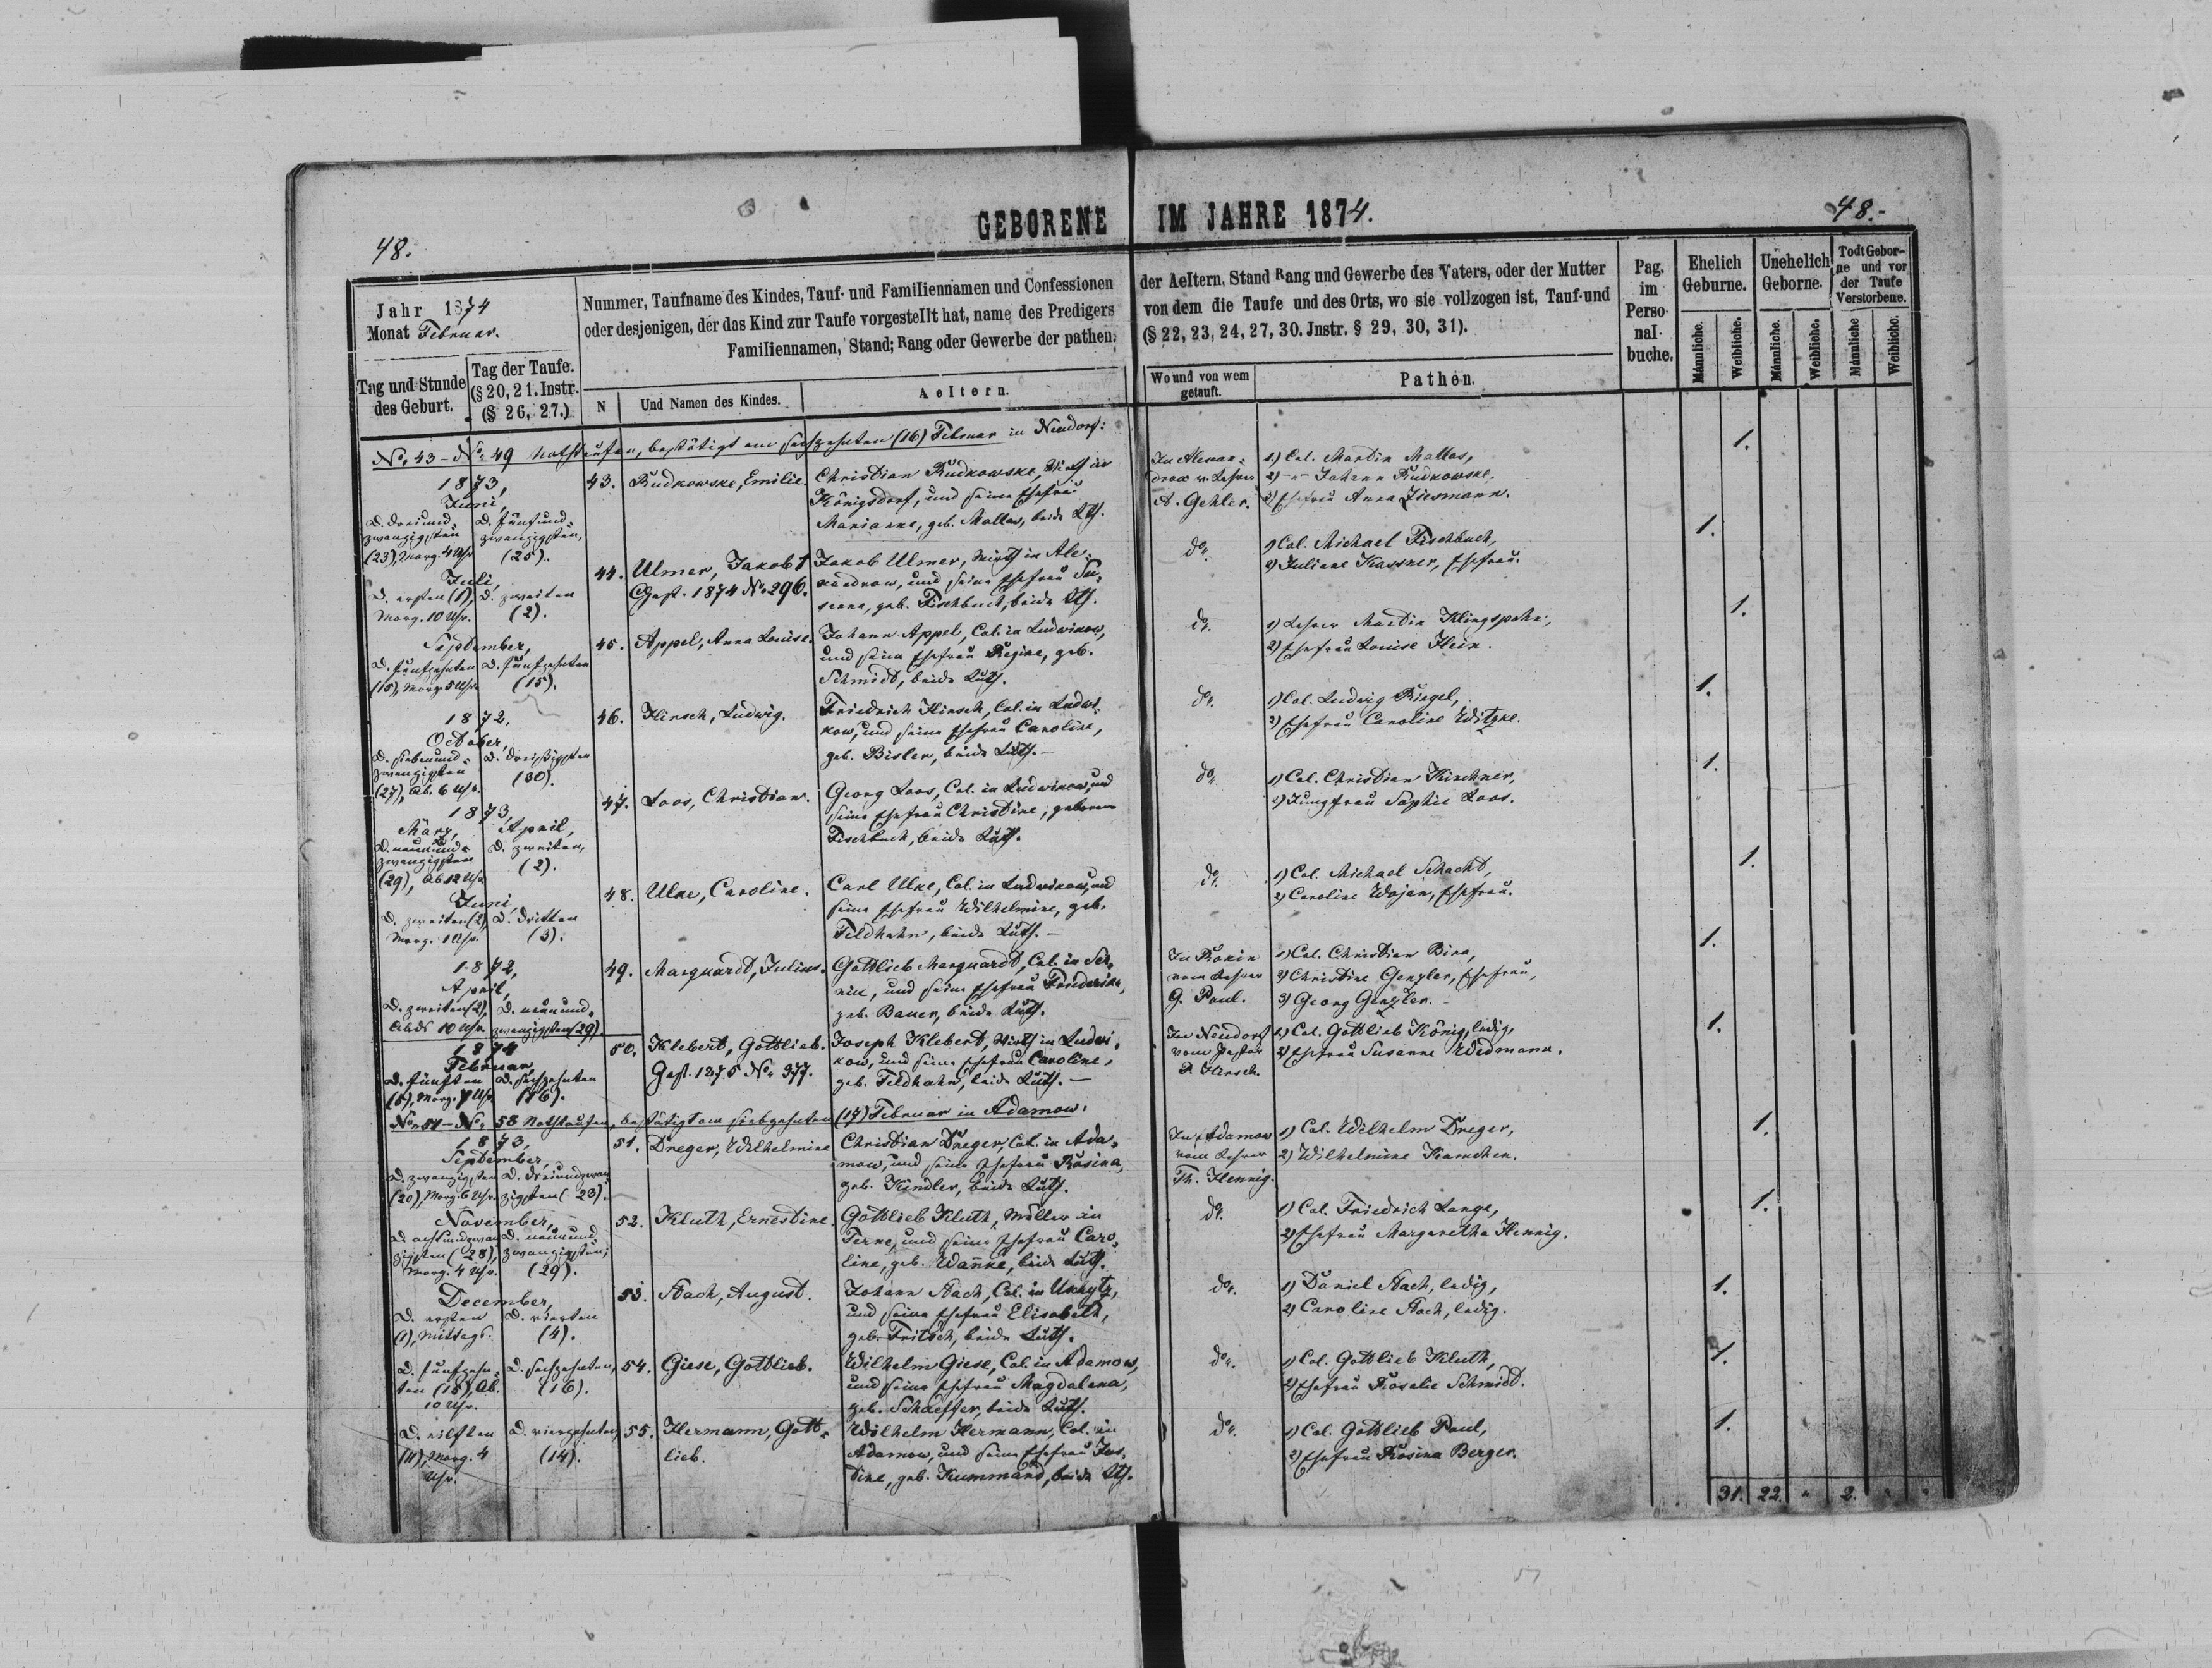 48.
GEBORENE IM JAHRE 1874.
48.-
Jahr 1874
Monat Februar.
Nummer, Taufname des Kindes, Tauf- und Familiennamen und Confessionen der Aeltern, Stand Rang und Gewerbe des Vaters, oder der Mutter
oder desjenigen, der das Kind zur Taufe vorgestellt hat, name des Predigers von dem die Taufe und des Orts, wo sie vollzogen ist, Tauf-und
Familiennamen, Stand; Rang oder Gewerbe der pathen. (§ 22, 23, 24, 27, 30. Jnstr. § 29, 30, 31).
Pag. im Perso- nal- buche.
Ehelich Geburne.
Unehelich Geborne.
Todt Gebor- ne und vor der Taufe Verstorbene.
Männliche. Weibliche. Männliche. Weibliche. Männliche Weibliche.
Tag und Stunde des Geburt.
Tag der Taufe. (§ 20, 21. Instr. (§ 26, 27.)
N
Und Namen des Kindes.
Aeltern.
Wo und von wem getauft.
Pathen.
No. 43 - No. 49 Nothtaufen, bestätigt am sechzehnten (16) Februar in Neudorf:
1873,
Juni,
D. dreiund- zwanzigsten (23), Morg. 4 Uhr
D. fünfund- zwanzigsten, (25).
43. Rudkowske, Emilie.
Christian Rudkowske, Wirth in
Königsdorf, und seine Ehefrau
Marianne, geb. Mallas, beide Lth.
In Alexan-
drow v. Lehrer
A. Gehler.
1.) Col. Martin Mallas,
2) -"- Johann Rudkowske.
3) Ehefrau Anna Ziesmann.
1.
Juli,
D. ersten (1), Morg. 10 Uhr.
D. zweiten (2).
44. Ulmer, Jakob †
Gest. 1874 No. 296.
Jakob Ulmer, Wirth in Ale-
xandrow, und seine Ehefrau Su-
sanna, geb. Fischbuch, beide Lth.
do.
1) Col. Michael Fischbuch,
2) Juliane Kassner, Ehefrau.
1.
September,
D. fünfzehnten (15), Morg. 5 Uhr.
D. fünfzehnten (15).
45. Appel, Anna Louise.
Johann Appel, Col. in Ludwikow,
und seine Ehefrau Regine, geb.
Schmidt, beide Luth.
do.
1) Lehrer Martin Klingspohn,
2) Ehefrau Louise Hein.
1.
1872.
October,
D. siebenund- zwanzigsten (27), Ab. 6 Uhr.
D. dreißigsten (30).
46. Hirsch, Ludwig.
Friedrich Hirsch, Col. in Ludwi-
kow, und seine Ehefrau Caroline,
geb. Bisler, beide Luth.-
do.
1) Col. Ludwig Riegel,
2) Ehefrau Caroline Witzke.
1.
1873,
März, April,
D. neunund- zwanzigsten (29), Ab. 12 Uhr
D. zweiten, (2).
47. Loos, Christian.
Georg Loos, Col. in Ludwikow, und
seine Ehefrau Christine, geboren
Fischbuch, beide Luth.
do.
1) Col. Christian Kirschner,
2) Jungfrau Sophie Loos.
1.
Juni,
D. zweiten (2), Morg. 1 Uhr.
D. dritten (3).
48. Ulke, Caroline.
Carl Ulke, Col. in Ludwikow, und
seine Ehefrau Wilhelmine, geb.
Feldhahn, beide Luth.-
do.
1) Col. Michael Schacht,
2) Caroline Wojan, Ehefrau.
1.
1872,
April,
D. zweiten (2), Abds 10 Uhr.
D. neunund- zwanzigsten (29).
49. Marquardt, Julius.
Gottlieb Marquardt, Col. in
und seine Ehefrau Friederike,
geb. Bauer, beide Luth.
In Rokin
vom Lehrer
G. Paul.
1) Col. Christian Bira,
2) Christine Genzler, Ehefrau,
3) Georg Genzler.
1.
1874
Februar
D. fünften (5), Morg. 7 Uhr
D. sechzehnten (16).
50. Klebert, Gottlieb.
Gest. 1875 No. 377.
Joseph Klebert, Wirth in Ludwi-
kow, und seine Ehefrau Caroline,
geb. Feldhahn, beide Luth.-
In Neudorf
vom Pastor
P. Hirsch.
1.) Col. Gottlieb König, ledig,
2) Ehefrau Susanne Widmann.
1.
No. 51 - No. 58 Nothtaufen, bestätigt am siebzehnten (17) Februar in Adamow.
1873,
September,
D. zwanzigsten (20), Morg. 6 Uhr.
D. dreiundzwan- zigsten (23).
51. Dreger, Wilhelmine
Christian Dreger, Col. in Ada-
mow, und seine Ehefrau Rosina,
geb. Kindler, beide Luth.
In Adamow
vom Lehrer
Th. Hennig.
1) Col. Wilhelm Dreger,
2) Wilhelmine
1.
November,
D. achtundzwan- zigsten (28), Morg. 4 Uhr.
D. neunund- zwanzigsten, (29).
52. Kluth, Ernestine.
Gottlieb Kluth, Müller in
Ferne, und seine Ehefrau Caro-
line, geb. Wanke, beide Luth.
do.
1) Col. Friedrich Lange,
2) Ehefrau Margaretha Hennig.
1.
December,
D. ersten (1), Mittags.
D. vierten (4).
53. Stach, August.
Johann Stach, Col. in
und seine Ehefrau Elisabeth,
geb. Fritsch, beide Luth.
do.
1) Daniel Stach, ledig,
2) Caroline Stach, ledig.
1.
D. fünfzehn- ten (15), Ab. 10 Uhr.
D. sechzehnten, (16).
54. Giese, Gottlieb.
Wilhelm Giese, Col. in Adamow,
und seine Ehefrau Magdalena,
geb. Schaeffer, beide Luth.
do.
1) Col. Gottlieb Kluth,
2) Ehefrau Rosalie Schmidt.
1.
D. eilften (11), Morg. 4 Uhr.
D. vierzehnten, (14).
55. Hermann, Gott-
lieb.
Wilhelm Hermann, Col. in
Adamow, und seine Ehefrau Jus-
tine, geb. Kummand, beide Lth.
do.
1) Col. Gottlieb Paul,
2) Ehefrau Rosina Berger.
1.
31. 22. " 2. " "